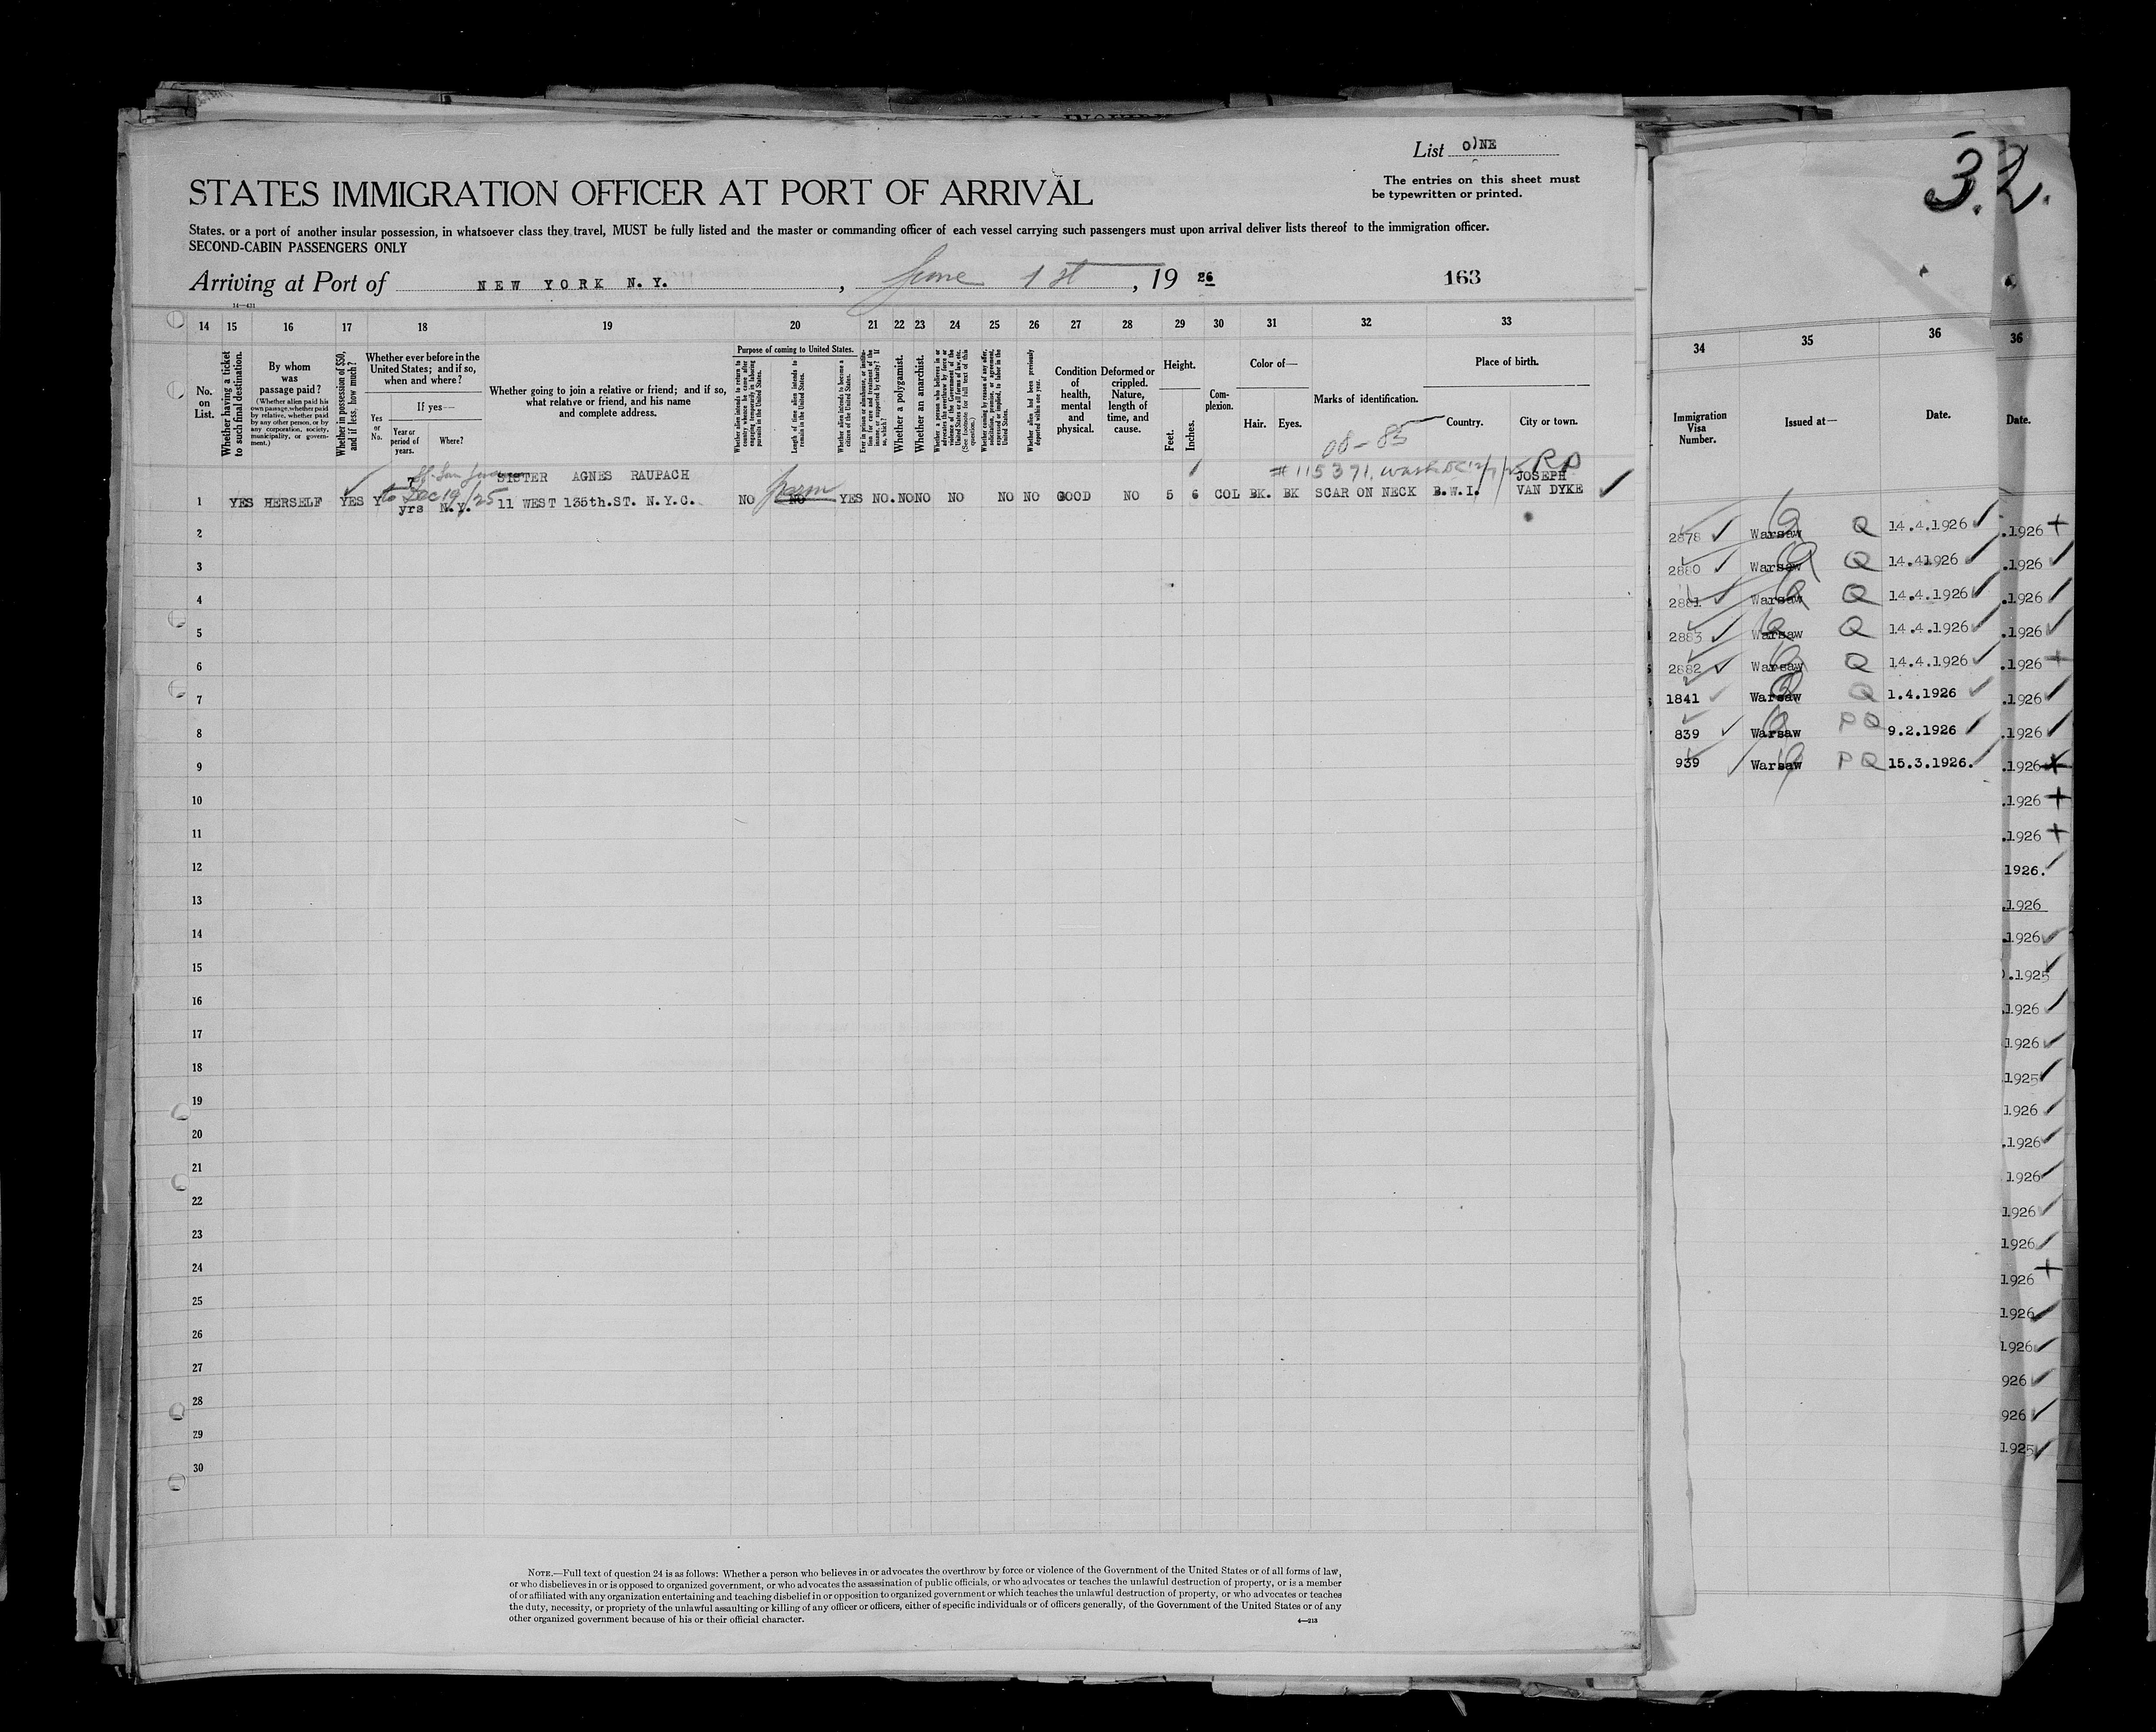 List O)NE
The entries on this sheet must
be typewritten or printed.
STATES IMMIGRATION OFFICER AT PORT OF ARRIVAL
States, or a port of another insular possession, in whatsoever class they travel, MUST be fully listed and the master or commanding officer of each vessel carrying such passengers must upon arrival deliver lists thereof to the immigration officer.
SECOND-CABIN PASSENGERS ONLY
Arriving at Port of NEW YORK N.Y., June 1st, 19 26 163
14—431
14 15 16 17 18 19 20 21 22 23 24 25 26 27 28 29 30 31 32 33
No. on List.
Whether having a ticket to such final destination.
By whom was passage paid?
(Whether alien paid his own passage, whether paid by relative, whether paid by any other person, or by any corporation, society, municipality, or government.)
Whether in possession of $50, and if less, how much?
Whether ever before in the United States; and if so, when and where?
Yes or No.
If yes—
Year or period of years.
Where?
Whether going to join a relative or friend; and if so, what relative or friend, and his name and complete address.
Purpose of coming to United States.
Whether alien intends to return to country whence he came after engaging temporarily in laboring pursuits in the United States.
Length of time alien intends to remain in the United States.
Whether alien intends to become a citizen of the United States.
Ever in prison or almshouse, or institution for care and treatment of the insane, or supported by charity? If so, which?
Whether a polygamist.
Whether an anarchist.
Whether a person who believes in or advocates the overthrow by force or violence of the Government of the United States or all forms of law, etc. (See footnote for full text of this question.)
Whether coming by reason of any offer, solicitation, promise, or agreement, expressed or implied, to labor in the United States.
Whether alien had been previously deported within one year.
Condition of health, mental and physical.
Deformed or crippled. Nature, length of time, and cause.
Height.
Feet.
Inches.
Complexion.
Color of—
Hair.
Eyes.
Marks of identification.
08-85
Place of birth.
Country.
City or town.
7 SISTER AGNES RAUPACH #115371. Wash DC RP JOSEPH
1 YES HERSELF YES Y to Dec 19/25 11 WEST 135th.ST. N.Y.C. NO perm NO YES NO. NO NO NO NO NO GOOD NO 5 6 COL BK. BK SCAR ON NECK B.W.I. VAN DYKE
yrs N.Y.
2
3
4
5
6
7
8
9
10
11
12
13
14
15
16
17
18
19
20
21
22
23
24
25
26
27
28
29
30
NOTE.—Full text of question 24 is as follows: Whether a person who believes in or advocates the overthrow by force or violence of the Government of the United States or of all forms of law,
or who disbelieves in or is opposed to organized government, or who advocates the assassination of public officials, or who advocates or teaches the unlawful destruction of property, or is a member
of or affiliated with any organization entertaining and teaching disbelief in or opposition to organized government or which teaches the unlawful destruction of property, or who advocates or teaches
the duty, necessity, or propriety of the unlawful assaulting or killing of any officer or officers, either of specific individuals or of officers generally, of the Government of the United States or of any
other organized government because of his or their official character.
4—213
3. 2.
34 35 36
Immigration Visa Number.
Issued at—
Date.
2878 Warsaw Q 14.4.1926
2880 Warsaw Q 14.41926
2881 Warsaw Q 14.4.1926
2883 Warsaw Q 14.4.1926
2882 Warsaw Q 14.4.1926
1841 Warsaw Q 1.4.1926
839 Warsaw PQ 9.2.1926
939 Warsaw PQ 15.3.1926.
36
Date.
.1926
.1926
.1926
.1926
.1926
.1926
.1926
.1926
.1926
.1926
1926.
.1926
.1926
.1925
.1926
.1926
1925
1926
.1926
1926
1926
1926
1926
1926
1926
926
926
1925